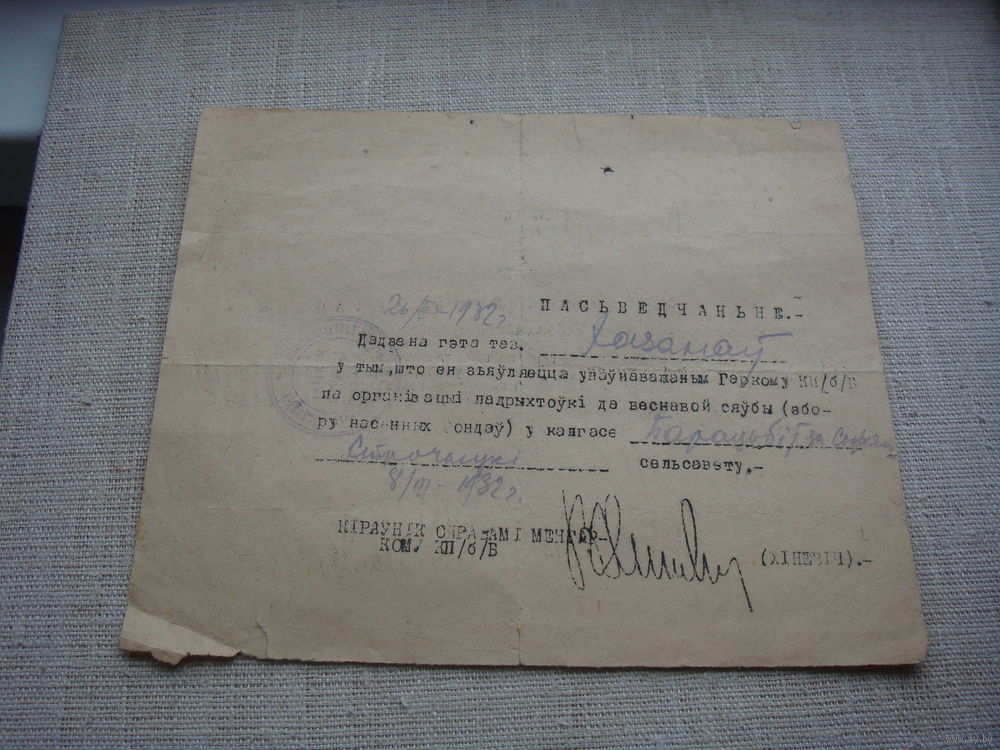 26/II-1932г.
ПАСЬВЕДЧАНЬНЕ.-
Дадзена гэта тав. Хазанаў
у тым,што ён зьяўляецца упаўнаважаным Гаркому КП/б/Б
па організацыі падрыхтоўкі да веснавой сяўбы (збо-
ру насенных фондаў) у калгасе Барацьбіт за Соцыял
Строчаукі сельсавету.-
8/III-1932г.
КІРАЎНІК СПРАВАМІ МЕНГАР-
КОМ/ КП/б/Б (ХІНЕВІЧ).-
www.ay.by